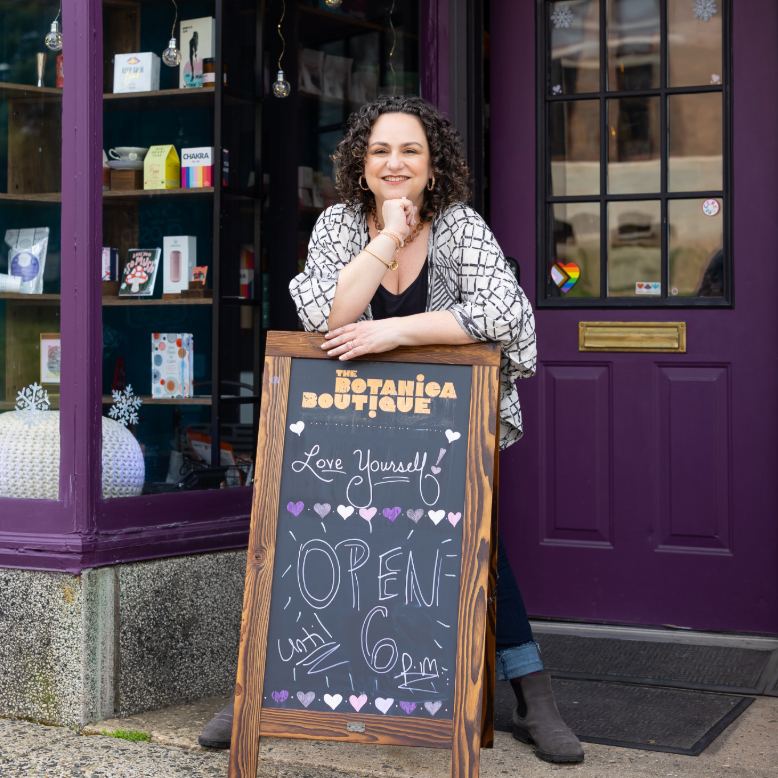 CHAKRA
THE
BOTANICA
BOUTIQUE
Love Yourself!
OPEN
until 6 P.M